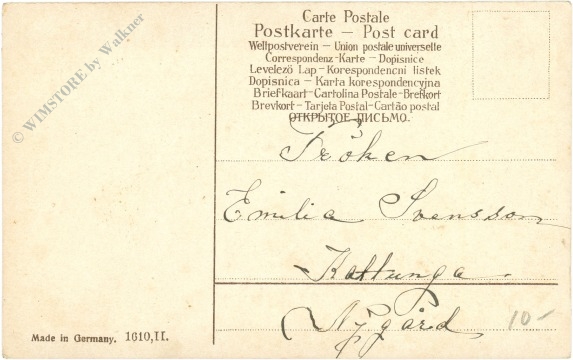 Carte Postale
Postkarte — Post card
Weltpostverein — Union postale universelle
Correspondenz-Karte — Dopisnice
Levelező Lap — Korespondencni listek
Dopisnica — Karta korespondencyjna
Briefkaart — Cartolina Postale — Brefkort
Brevkort — Tarjeta Postal — Cartão postal
ОТКРЫТОЕ ПИСЬМО.
Fröken
Emilia Svensson
Kattunga.
Nygård
10-
Made in Germany. 1610,II.
© WIMSTORE by Walkner